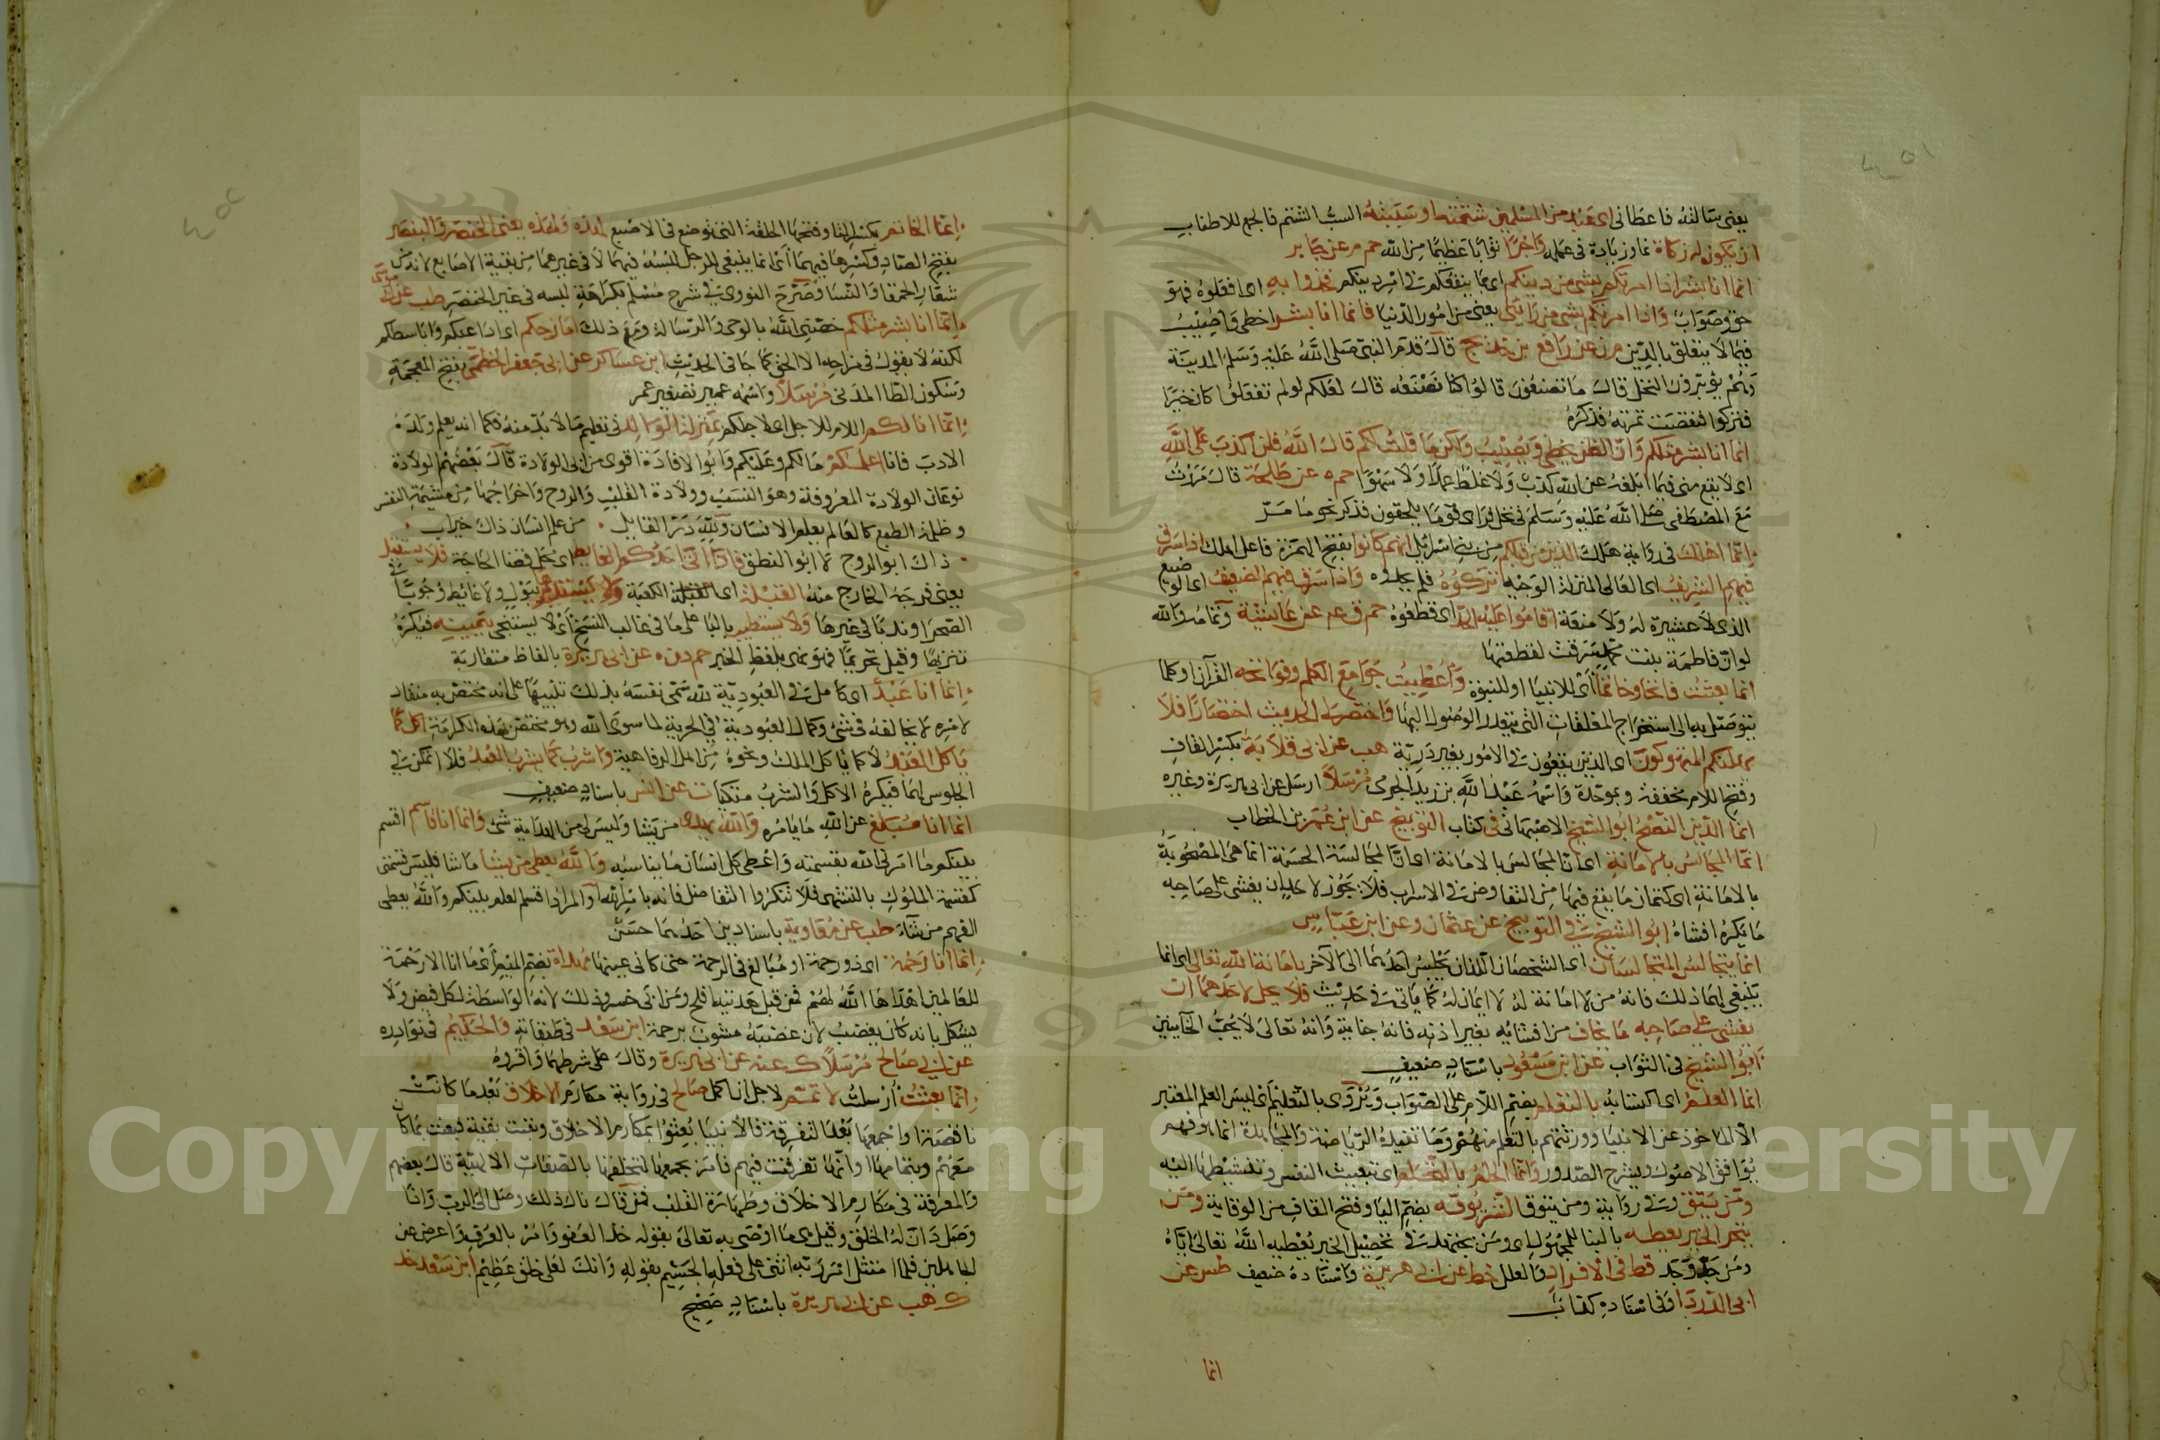 يعنى سالته فاعطانى اى عبد من المسلمين شتمته او سببته السب الشتم فالجمع للاطناب
ان يكون له زكاة نماء وزيادة فى عمله واجرا ثوابا عظيما من الله حم م عن جابر
انما انا بشر اذا امرتكم بشئ من دينكم اى بما ينفعكم فى امر دينكم فخذوا به اى افعلوه فهو
حق وصواب واذا امرتكم بشئ من رايى يعنى من امور الدنيا فانما انا بشر اخطى واصيب
فيما لا يتعلق بالدين م ن عن رافع بن خديج قال قدم النبى صلى الله عليه وسلم المدينة
وهم يؤبرون النخل قال ما تصنعون قالوا كنا نصنعه قال لعلكم لو لم تفعلوا كان خيرا
فتركوا فنقصت ثمرته فذكره
انما انا بشر مثلكم وان الظن يخطى ويصيب ولكن ما قلت لكم قال الله فلن اكذب على الله
اى لا يقع منى فيما ابلغه عن الله كذب ولا غلط عمدا ولا سهوا حم ه عن طلحة قال مررت
مع المصطفى صلى الله عليه وسلم فى نخل فراى قوما يلحقون فذكر نحو ما مر
انما اهلك فى رواية هلك الذين من قبلكم من بنى اسرائيل انهم كانوا بفتح الهمزة فاعل اهلك اذا سرق
فيهم الشريف اى العالى المنزلة الوجيه تركوه فلم يحدوه واذا سرق فيهم الضعيف اى الوضيع
الذى لا عشيرة له ولا منعة اقاموا عليه الحد اى قطعوه حم ق عم عن عائشة وتمامه والله
لو ان فاطمة بنت محمد سرقت لقطعتها
انما بعثت فاتحا وخاتما اى للانبيا او للنبوة واعطيت جوامع الكلم وفواتحه القرآن او كلما
يتوصل به الى استخراج المغلقات التى يتعذر الوصول اليها واختصر لى الحديث اختصارا فلا
يهلكنكم المتهوكون اى الذين يقعون فى الامور بغير دربة هب عن ابى قلابة بكسر القاف
وفتح اللام مخففة وبموحدة واسمه عبد الله بن زيد الجرمى مرسلا ارسل عن ابى هريرة وغيره
انما الدين النصح ابو الشيخ الاصبهانى فى كتاب التوبيخ عن ابن عمر بن الخطاب
انما المجالس بالامانة اى ان المجالس بالامانة اى ان المجالسة الحسنة انما هى المصحوبة
بالامانة اى كتمان ما يقع فيها من التفاوض فى الاسرار فلا يجوز لاحد ان يفشى على صاحبه
ما يكره افشاه ابو الشيخ فى التوبيخ عن عثمان وعن ابن عباس
انما يتجالس المتجالسان اى الشخصان اللذان يجلس احدهما الى الآخر بامانة الله تعالى اى انما
ينبغى لهما ذلك فانه من لا امانة له لا ايمان له كما ياتى فى حديث فلا يحل لاحدهما ان
يفشى على صاحبه ما يخاف من افشائه بغير اذنه فانه خيانة وانه تعالى لا يحب الخاينين
ابو الشيخ فى الثواب عن ابن مسعود باسناد ضعيف
انما العلم اى اكتسابه بالتعلم بضم اللام على الصواب ويروى بالتعليم اى ليس العلم المعتبر
الا الماخوذ عن الانبيا وورثتهم بالتعلم منهم وما تفيده الرياضة والمجاهدة انما هو فهم
يوافق الاصول ويشرح الصدور وانما الحلم بالتحلم اى ببعث النفس وتنشيطها اليه
ومن يتق وفى رواية ومن يتوق الشر يوقه بضم اليا وفتح القاف من الوقاية ومن
يتحر الخير يعطه بالبنا للمجهول اى ومن يجتهد فى تحصيل الخير يعطيه الله تعالى اياه
ومن جد وجد قط فى الافراد والعلل خط عن ابى هريرة واسناده ضعيف طس عن
ابى الدردا وفى اسناده كذاب
انما
انما الخاتم بكسر التا وفتحها الحلقة التى توضع فى الاصبع لهذه ولهذه يعنى الخنصر والبنصر
بفتح الصاد وكسرها فيهما اى انما ينبغى للرجل لبسه فيهما لا فى غيرهما من بقية الاصابع لانه من
شعار الحمقا والنسا وصرح النووى فى شرح مسلم بكراهة لبسه فى غير الخنصر طب عن ابى موسى
انما انا بشر مثلكم خصنى الله بالوحى والرسالة ومع ذلك امازحكم اى اداعبكم واباسطكم
لكنه لا يقول فى مزاحه الا الحق كما جا فى الحديث ابن عساكر عن ابى جعفر الخطمى بفتح المعجمة
وسكون الطا المدنى مرسلا واسمه عمير تصغير عمر
انما انا لكم اللام للاجل اى لاجلكم بمنزلة الوالد فى تعليم ما لا بد منه فكما انه يعلم ولده
الادب فانا اعلمكم ما لكم وعليكم وابو الافادة اقوى من ابى الولادة قال بعضهم الولادة
نوعان الولادة المعروفة وهو النسب وولادة القلب والروح واخراجهما من مشيمة النفس
وظلمة الطبع كالعالم يعلم الانسان ولله در القايل من علم انسان ذاك خير اب
ذاك ابو الروح لا ابو النطق فاذا اتى احدكم الغايط اى محل قضا الحاجة فلا يستقبل
يعنى فرجه الخارج منه القبلة اى القبلة الكعبة ولا يستدبرها ببول ولا غايط وجوبا فى
الصحرا وندبا فى غيرها ولا يستطيب باليا على ما فى غالب النسخ اى لا يستنجى بيمينه فيكره
تنزيها وقيل تحريما فهو نهى بلفظ الخبر حم د ن ه عن ابى هريرة بالفاظ متقاربة
انما انا عبد اى كامل فى العبودية لله سمى نفسه بذلك تنبيها على انه مختص به منقاد
لامره لا يخالفه فى شئ وكمال العبودية فى الحرية لما سوى الله وهو مختص بهذه الكرامة آكل كما
ياكل العبد لا كما ياكل الملك ونحوه من اهل الرفاهية واشرب كما يشرب العبد فلا اتمكن فى
الجلوس لهما فيكره الاكل والشرب متكيا ت عن انس باسناد ضعيف
انما انا مبلغ عن الله ما يامر به والله يهدى من يشا وليس لى من الهداية شئ وانما انا قاسم اقسم
بينكم ما امرنى الله بقسمته واعطى كل انسان ما يناسبه والله يعطى من يشا ما شا فليس قسمتى
كقسمة الملوك بالتشهى فلا تنكروا التفاضل فانه بامر الله او المراد اقسم العلم بينكم والله يعطى
الفهم من شاء طب عن معاوية باسنادين احدهما حسن
انما انا رحمة اى ذو رحمة او مبالغ فى الرحمة حتى كانى عينها مهداة بضم الميم اى ما انا الا رحمة
للعالمين اهداها الله لهم فمن قبل هديته افلح ومن ابى خسر وذلك لانه الواسطة لكل فيض ولا
يشكل بانه كان يغضب لان غضبه مشوب برحمة ابن سعد فى طبقاته والحكيم فى نوادره
عن ابى صالح مرسلا ك عنه عن ابى هريرة وقال على شرطهما واقروه
انما بعثت ارسلت لاتمم لاجل ان اكمل صالح فى رواية مكارم الاخلاق بعد ما كانت
ناقصة او اجمعها بعد التفرقة فالانبيا بعثوا بمكارم الاخلاق وبقيت بقية فبعث بما كان
معهم وبتمامها او انها تفرقت فيهم فامر بجمعها لتخلقه بالصفات الالهية قال بعضهم
والمعرفة فى مكارم الاخلاق وطهارة القلب فمن نال ذلك وصل الى الرب واذا
وصل دان له الخلق وقيل هى ما اوصى به تعالى بقوله خذ العفو وامر بالعرف واعرض عن
الجاهلين فلما امتثل امر ربه اثنى على فعله الجسيم بقوله وانك لعلى خلق عظيم ابن سعد خد
ك هب عن ابى هريرة باسناد صحيح
Copyright © King Saud University